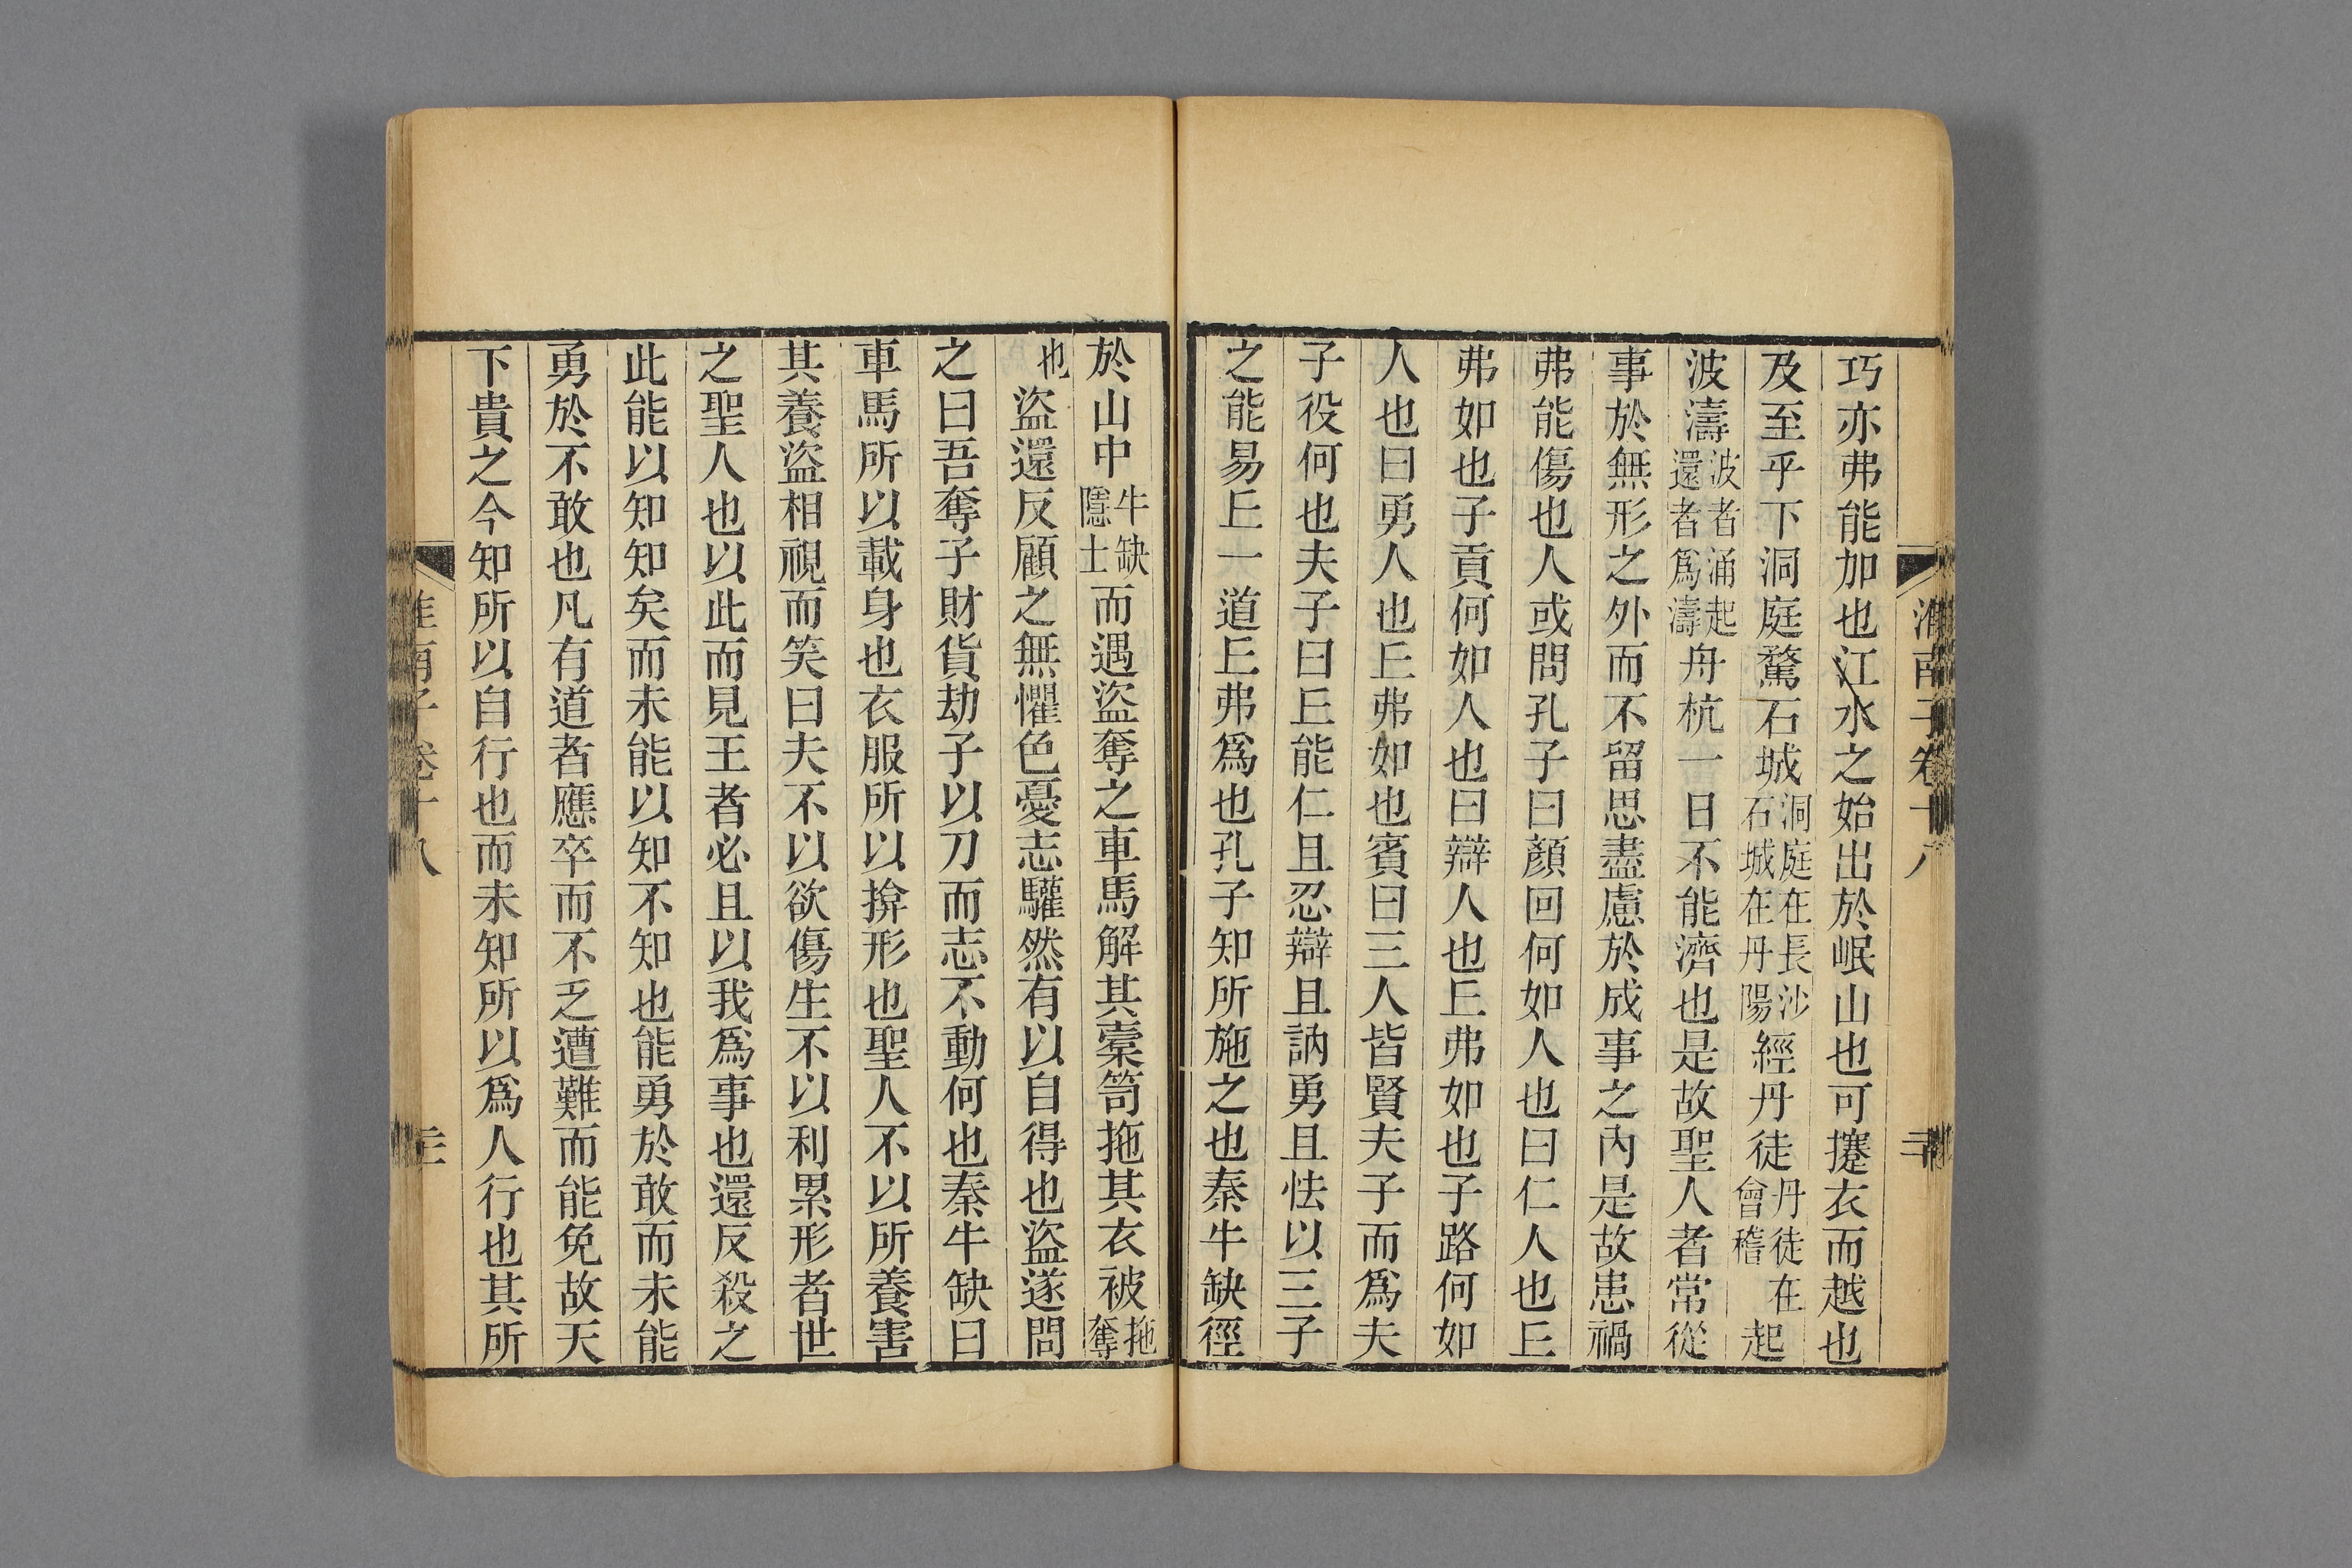 淮南子卷十八
巧亦弗能加也江水之始出於岷山也可攓衣而越也
及至乎下洞庭騖石城洞庭在長沙石城在丹陽經丹徒丹徒在會稽起
波濤波者涌起還者爲濤舟杭一日不能濟也是故聖人者常從
事於無形之外而不留思盡慮於成事之內是故患禍
弗能傷也人或問孔子曰顏回何如人也曰仁人也𠀉
弗如也子貢何如人也曰辯人也𠀉弗如也子路何如
人也曰勇人也𠀉弗如也賓曰三人皆賢夫子而爲夫
子役何也夫子曰𠀉能仁且忍辯且訥勇且怯以三子
之能易𠀉一道𠀉弗爲也孔子知所施之也秦牛缺徑
於山中牛缺隱士而遇盜奪之車馬解其橐笥拖其衣被拖奪
也盜還反顧之無懼色憂志驩然有以自得也盜遂問
之曰吾奪子財貨劫子以刀而志不動何也秦牛缺曰
車馬所以載身也衣服所以揜形也聖人不以所養害
其養盜相視而笑曰夫不以欲傷生不以利累形者世
之聖人也以此而見王者必且以我爲事也還反殺之
此能以知知矣而未能以知不知也能勇於敢而未能
勇於不敢也凡有道者應卒而不乏遭難而能免故天
下貴之今知所以自行也而未知所以爲人行也其所
淮南子卷十八